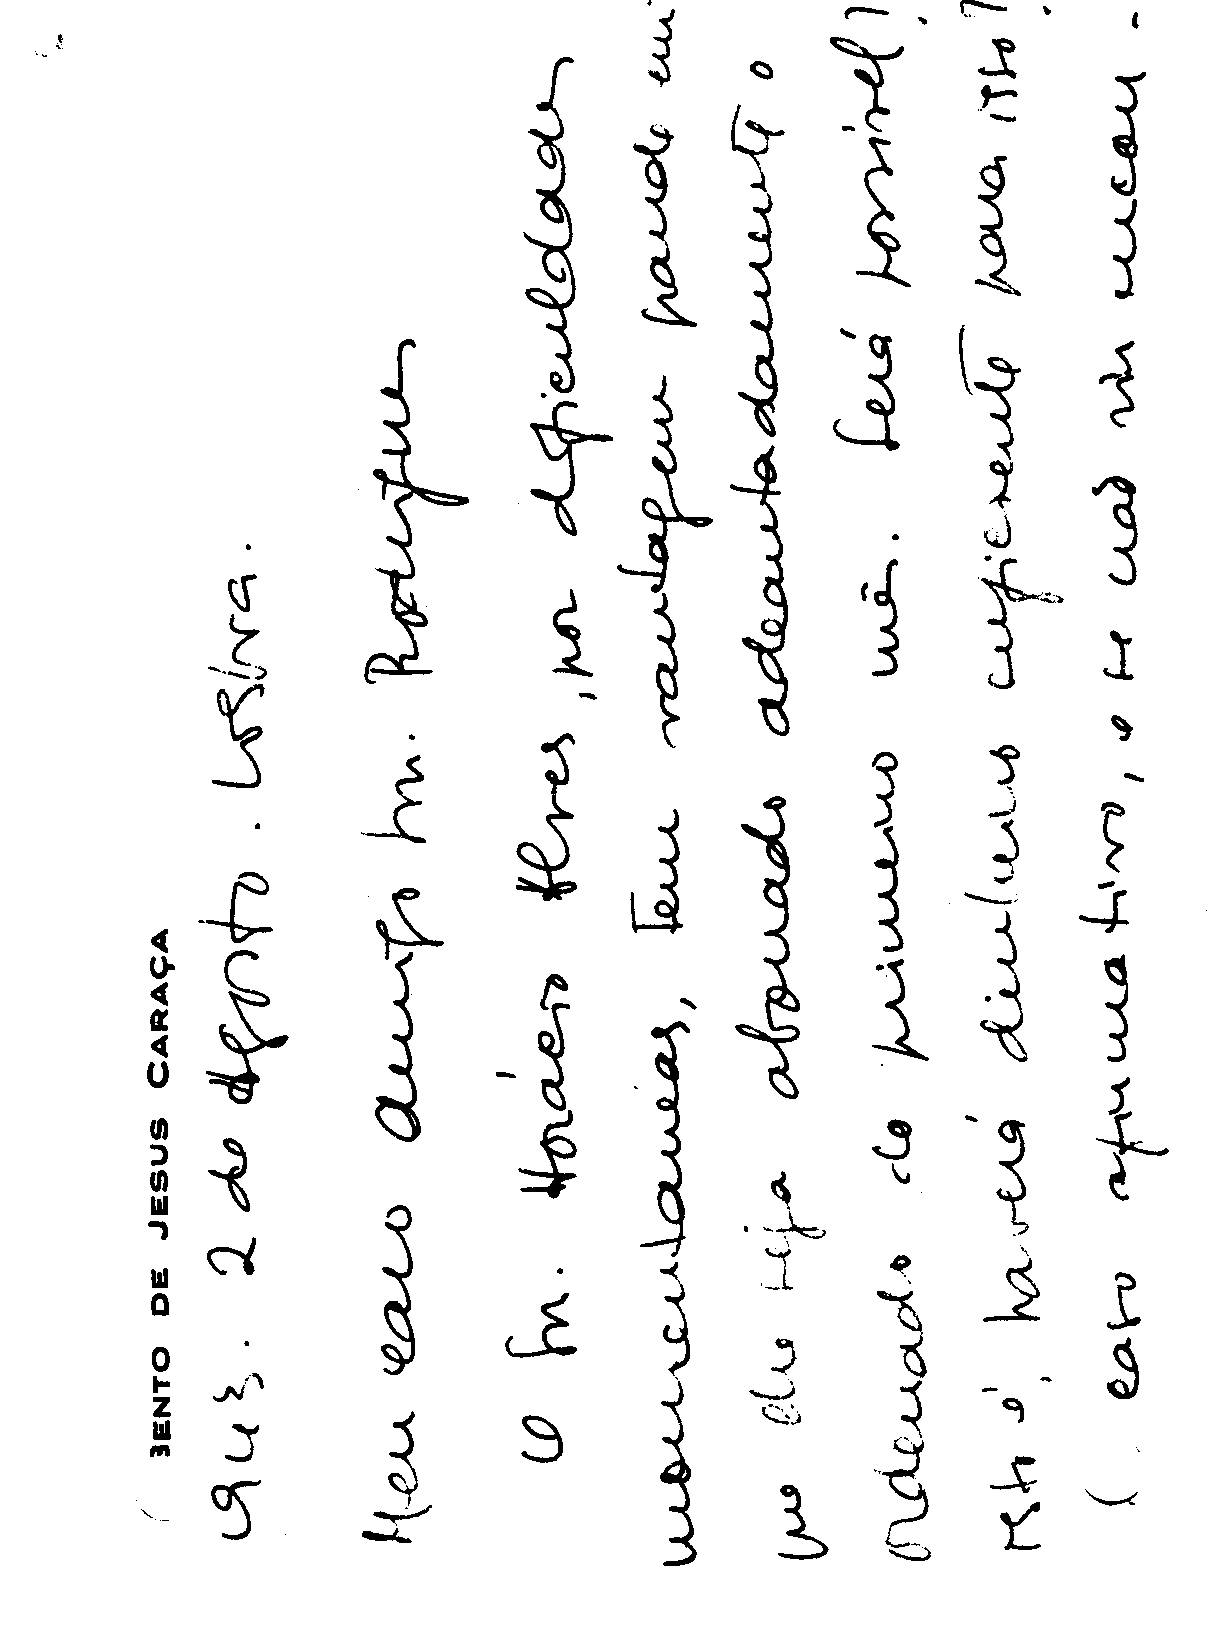 BENTO DE JESUS CARAÇA
943. 2 de Agosto. Lisboa.
Meu caro amigo Sn. Rodrigues
O Sn. Horácio Alves, por dificuldades
momentaneas, tem vantagem grande em
que lhe seja abonado adeantadamente o
ordenado do primeiro mês. Será possivel?
Isto é, haverá dinheiro suficiente para isso?
(caso afirmativo, e se não vir incon-